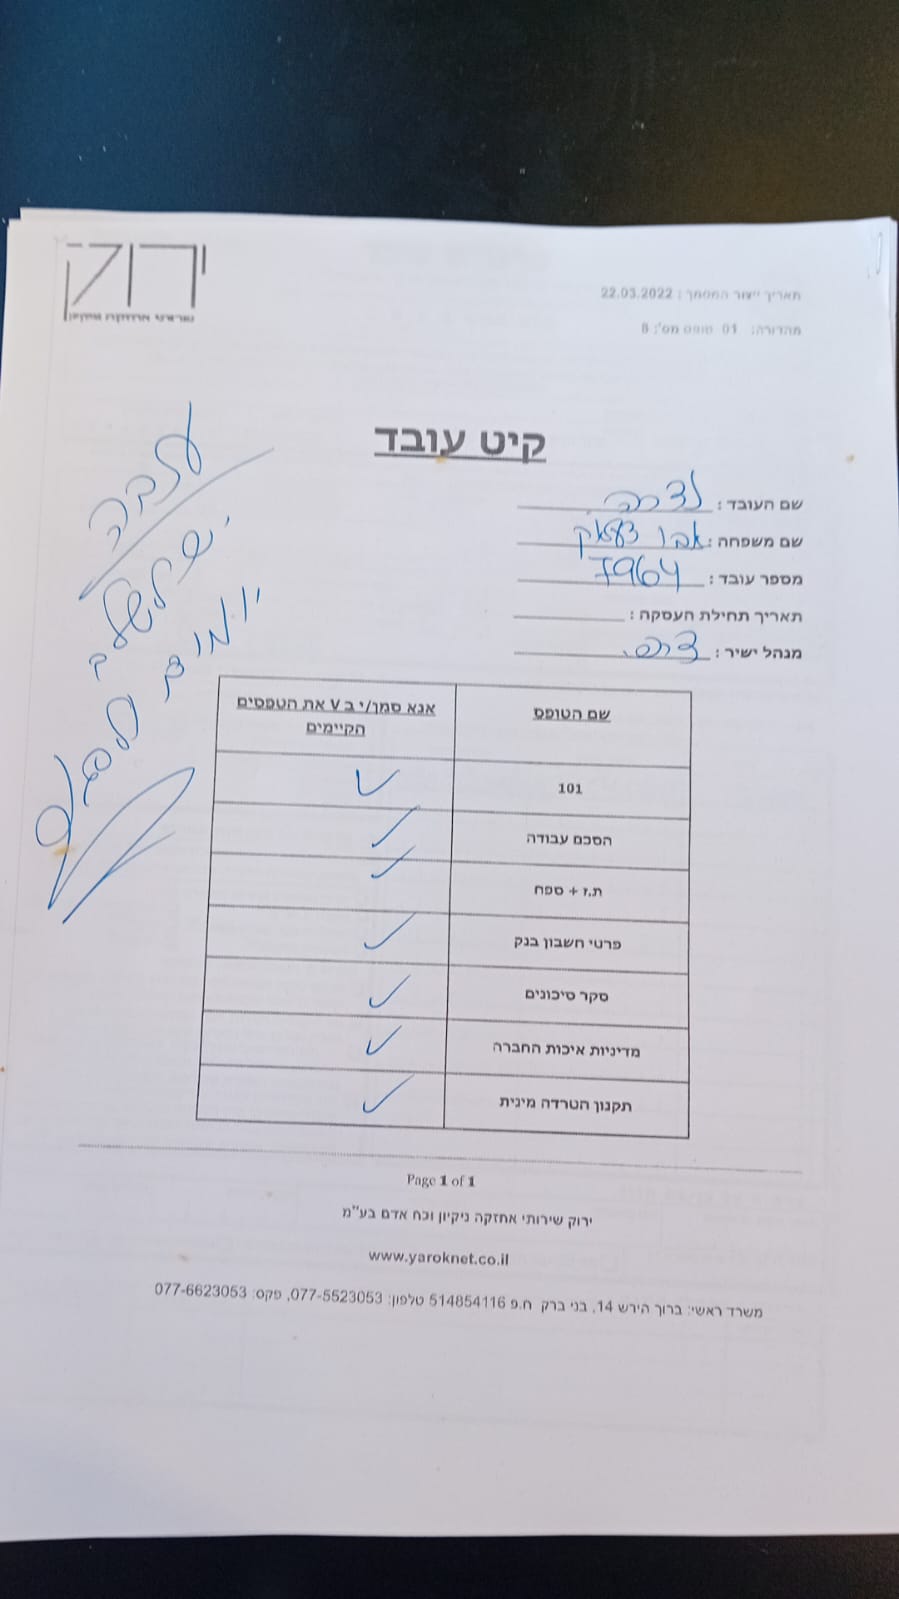 ירוק
שרותי אחזקה וניקיון
תאריך ייצור המסמך : 22.03.2022
מהדורה: 01 טופס מס': 8
קיט עובד
שם העובד :
שם משפחה : אבו
מספר עובד : 7964
תאריך תחילת העסקה :
מנהל ישיר :
עזבה
ימים
שם הטופס אנא סמן/י ב V את הטפסים
הקיימים
101 ✓
הסכם עבודה ✓
ת.ז + ספח ✓
פרטי חשבון בנק ✓
סקר סיכונים ✓
מדיניות איכות החברה ✓
תקנון הטרדה מינית ✓
Page 1 of 1
ירוק שירותי אחזקה ניקיון וכח אדם בע"מ
www.yaroknet.co.il
משרד ראשי: ברוך הירש 14, בני ברק ח.פ 514854116 טלפון: 077-5523053, פקס: 077-6623053